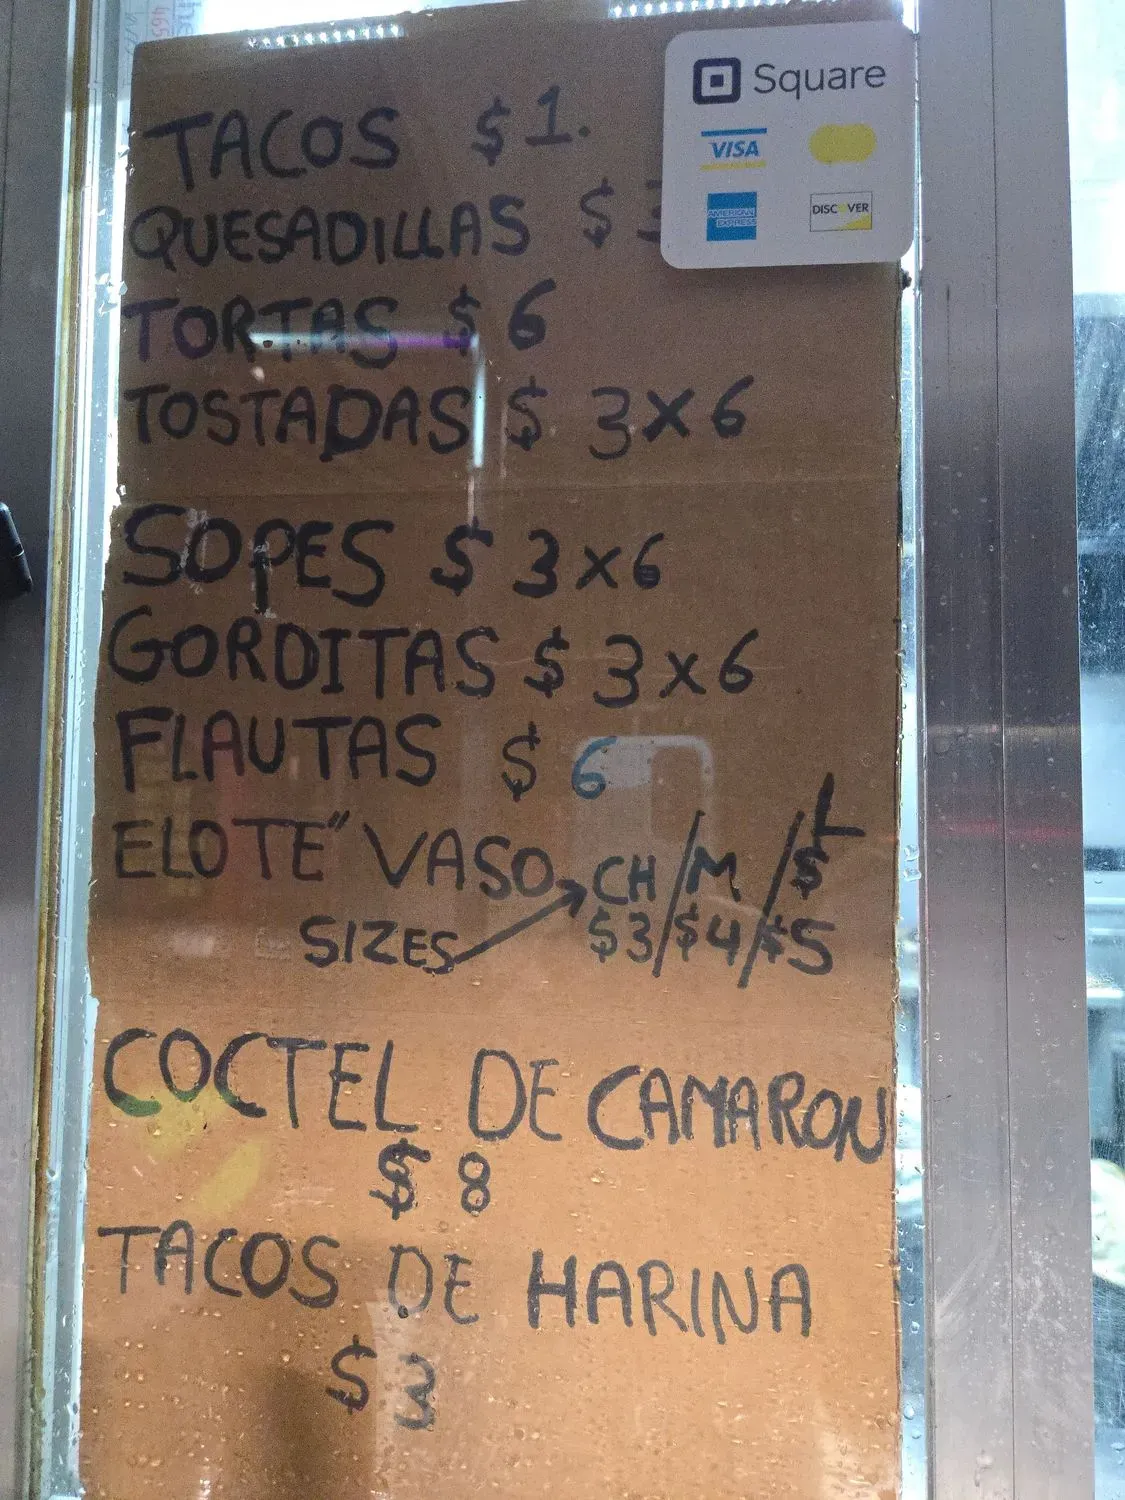 TACOS $1.
Square
VISA
AMERICAN EXPRESS
DISCOVER
QUESADILLAS $3
TORTAS $6
TOSTADAS $ 3x6
SOPES $ 3x6
GORDITAS $ 3x6
FLAUTAS $ 6
ELOTE "VASO CH/M/L
SIZES $3/$4/$5
$
COCTEL DE CAMARON
$ 8
TACOS DE HARINA
$ 3